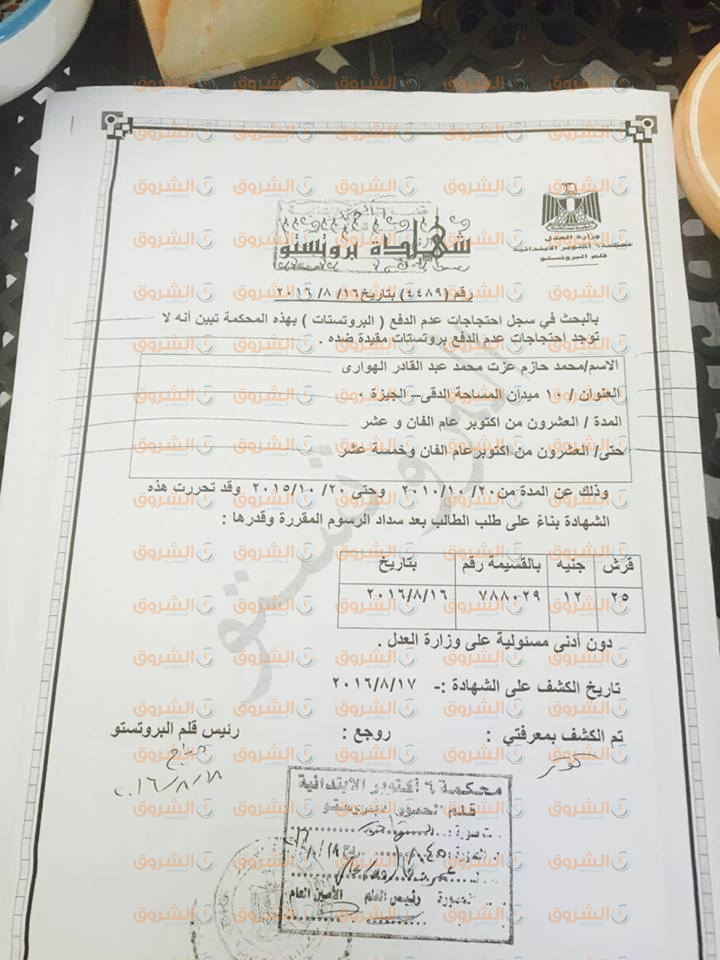 وزارة العدل
محكمة ٦ أكتوبر الابتدائية
قلم البروتستو
شهادة بروتستو
رقم (٤٤٨٩) بتاريخ ٢٠١٦/٨/١٦
بالبحث في سجل احتجاجات عدم الدفع ( البروتستات ) بهذه المحكمة تبين أنه لا
توجد احتجاجات عدم الدفع بروتستات مقيدة ضده .
الاسم/محمد حازم عزت محمد عبد القادر الهوارى
العنوان / ١٠ ميدان المساحة الدقى– الجيزة .
المدة / العشرون من اكتوبر عام الفان و عشر
حتى/ العشرون من اكتوبر عام الفان وخمسة عشر
وذلك عن المدة من ٢٠/ ١٠/ ٢٠١٠ وحتى ٢٠/ ١٠/ ٢٠١٥ وقد تحررت هذه
الشهادة بناءً على طلب الطالب بعد سداد الرسوم المقررة وقدرها :
قرش جنيه بالقسيمة رقم بتاريخ
٢٥ ١٢ ٧٨٨٠٢٩ ٢٠١٦/٨/١٦
دون أدنى مسئولية على وزارة العدل .
تاريخ الكشف على الشهادة :- ٢٠١٦/٨/١٧
تم الكشف بمعرفتي : روجع : رئيس قلم البروتستو
كوثر
٢٠١٦/٨/١٨
محكمة ٦ أكتوبر الابتدائية
رئيس القلم الأمين العام
البروتستو
الشروق